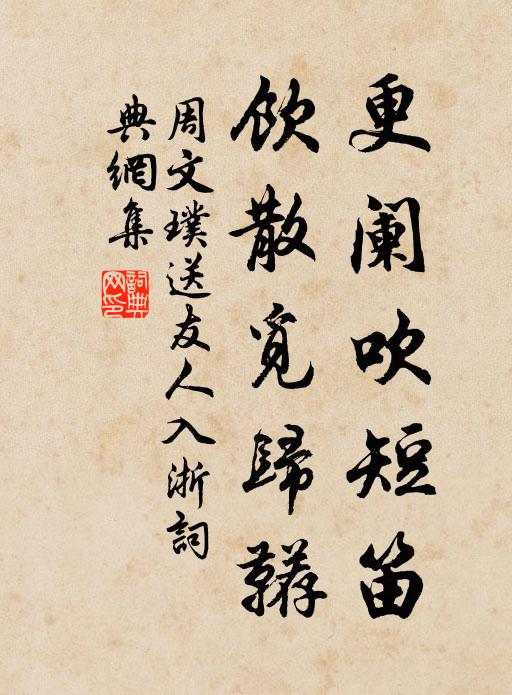 更阑吹短笛
飲散覓歸韉
周文璞送友人入浙詞
典網集
詞典
网印